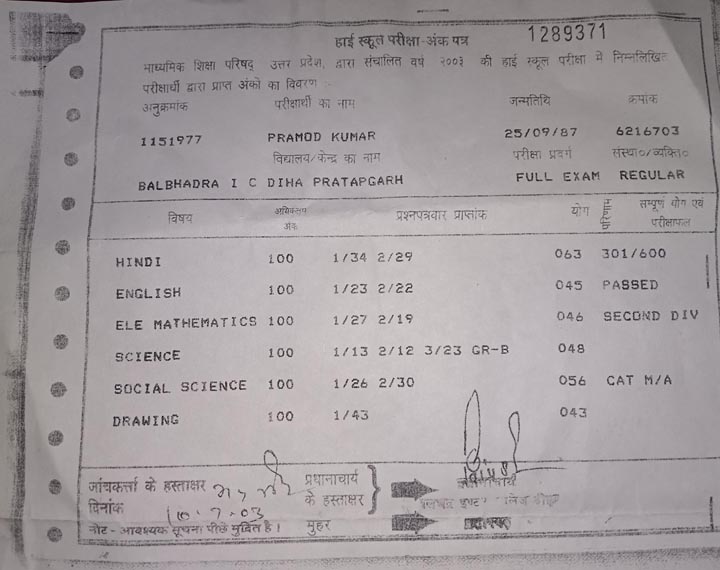 हाई स्कूल परीक्षा-अंक पत्र 1289371
माध्यमिक शिक्षा परिषद् उत्तर प्रदेश, द्वारा संचालित वर्ष २००३ की हाई स्कूल परीक्षा में निम्नलिखित
परीक्षार्थी द्वारा प्राप्त अंको का विवरण
अनुक्रमांक परीक्षार्थी का नाम जन्मतिथि क्रमांक
1151977 PRAMOD KUMAR 25/09/87 6216703
विद्यालय/केन्द्र का नाम परीक्षा प्रवर्ग संस्था०/व्यक्ति०
BALBHADRA I C DIHA PRATAPGARH FULL EXAM REGULAR
विषय अधिकतम अंक प्रश्नपत्रवार प्राप्तांक योग सम्पूर्ण योग एवं परीक्षाफल
HINDI 100 1/34 2/29 063 301/600
ENGLISH 100 1/23 2/22 045 PASSED
ELE MATHEMATICS 100 1/27 2/19 046 SECOND DIV
SCIENCE 100 1/13 2/12 3/23 GR-B 048
SOCIAL SCIENCE 100 1/26 2/30 056 CAT M/A
DRAWING 100 1/43 043
जांचकर्त्ता के हस्ताक्षर प्रधानाचार्य
दिनांक 10.7.03 के हस्ताक्षर
नोट - आवश्यक सूचना पीछे मुद्रित है। मुहर